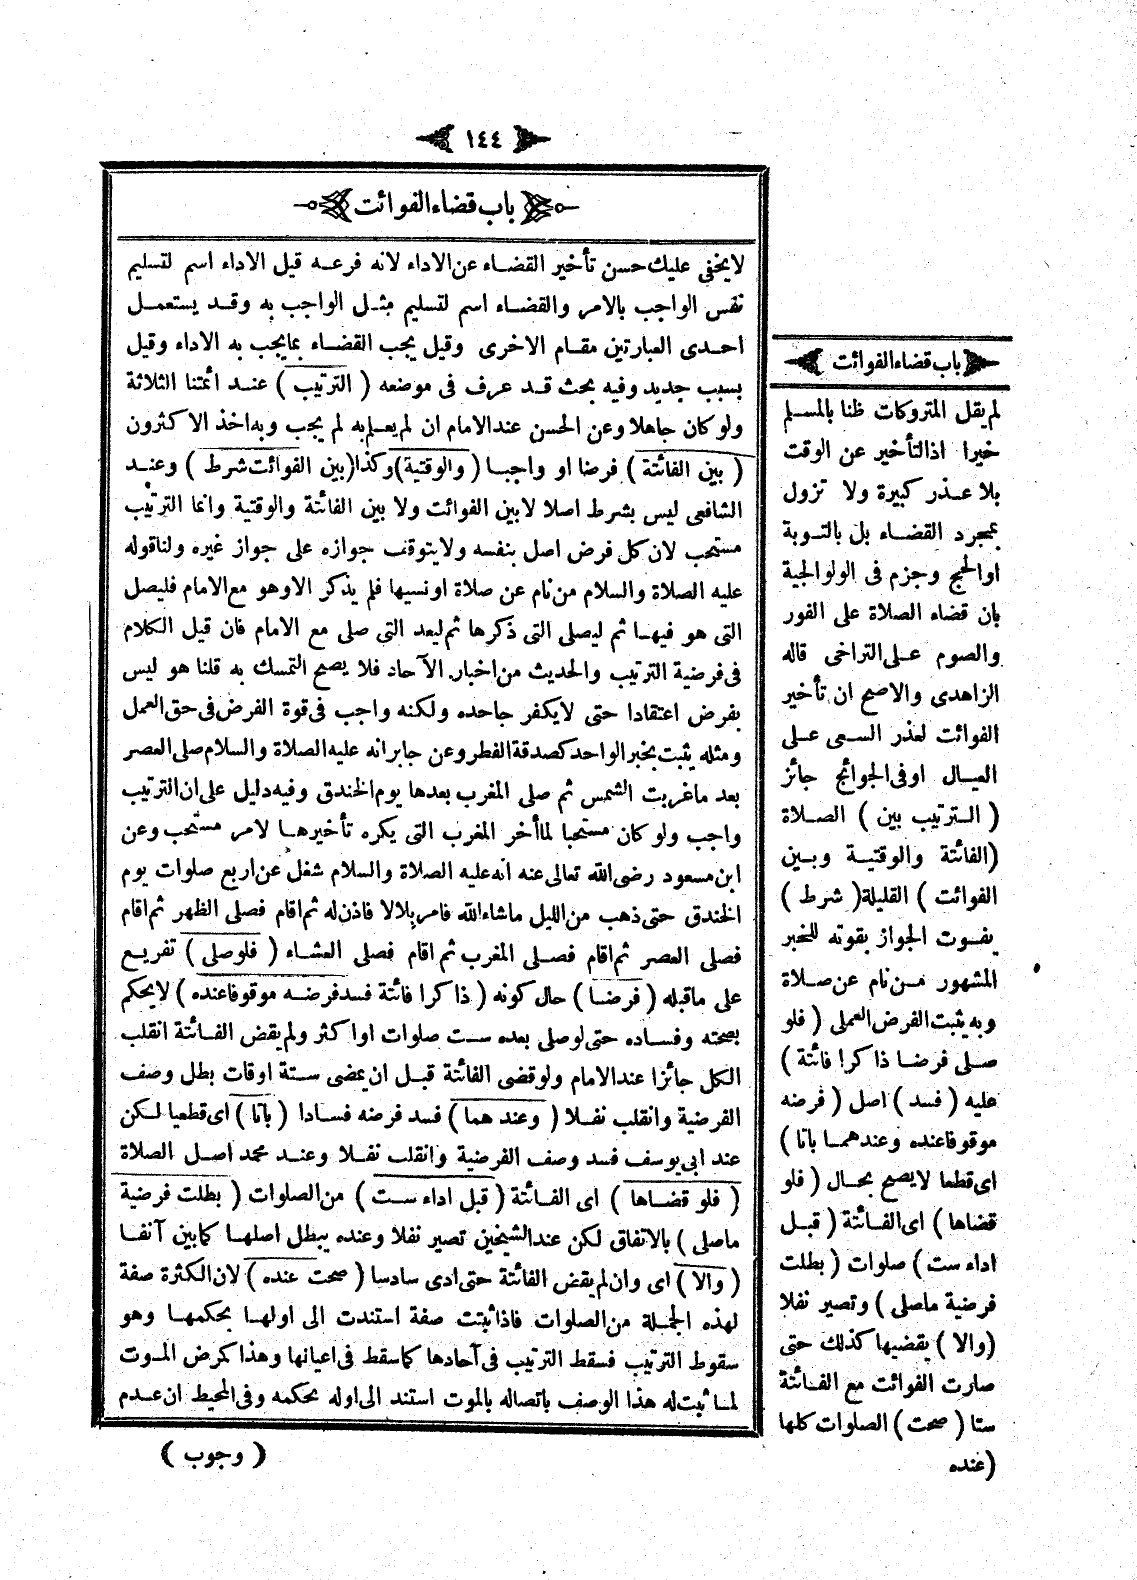 ١٤٤
باب قضاء الفوائت
لا يخفى عليك حسن تأخير القضاء عن الاداء لانه فرعه قيل الاداء اسم لتسليم
نفس الواجب بالامر والقضاء اسم لتسليم مثل الواجب به وقد يستعمل
احدى العبارتين مقام الاخرى وقيل يجب القضاء بما يجب به الاداء وقيل
بسبب جديد وفيه بحث قد عرف فى موضعه ( الترتيب ) عند ائمتنا الثلاثة
ولو كان جاهلا وعن الحسن عند الامام ان لم يعلم به لم يجب وبه اخذ الاكثرون
( بين الفائتة ) فرضا او واجبا ( والوقتية ) وكذا ( بين الفوائت شرط ) وعند
الشافعى ليس بشرط اصلا لا بين الفوائت ولا بين الفائتة والوقتية وانما الترتيب
مستحب لان كل فرض اصل بنفسه ولا يتوقف جوازه على جواز غيره ولنا قوله
عليه الصلاة والسلام من نام عن صلاة او نسيها فلم يذكر الا وهو مع الامام فليصل
التى هو فيها ثم ليصلى التى ذكرها ثم ليعد التى صلى مع الامام فان قيل الكلام
فى فرضية الترتيب والحديث من اخبار الآحاد فلا يصح التمسك به قلنا هو ليس
بفرض اعتقادا حتى لا يكفر جاحده ولكنه واجب فى قوة الفرض فى حق العمل
ومثله يثبت بخبر الواحد كصدقة الفطر وعن جابر انه عليه الصلاة والسلام صلى العصر
بعد ما غربت الشمس ثم صلى المغرب بعدها يوم الخندق وفيه دليل على ان الترتيب
واجب ولو كان مستحبا لما أخر المغرب التى يكره تأخيرها لامر مستحب وعن
ابن مسعود رضى الله تعالى عنه انه عليه الصلاة والسلام شغل عن اربع صلوات يوم
الخندق حتى ذهب من الليل ما شاء الله فامر بلالا فاذن له ثم اقام فصلى الظهر ثم اقام
فصلى العصر ثم اقام فصلى المغرب ثم اقام فصلى العشاء ( فلو صلى ) تفريع
على ما قبله ( فرضا ) حال كونه ( ذاكرا فائتة فسد فرضه موقوفا عنده ) لا يحكم
بصحته وفساده حتى لو صلى بعده ست صلوات او اكثر ولم يقض الفائتة انقلب
الكل جائزا عند الامام ولو قضى الفائتة قبل ان يمضى ستة اوقات بطل وصف
الفرضية وانقلب نفلا ( وعندهما ) فسد فرضه فسادا ( باتا ) اى قطعيا لكن
عند ابى يوسف فسد وصف الفرضية وانقلب نفلا وعند محمد اصل الصلاة
( فلو قضاها ) اى الفائتة ( قبل اداء ست ) من الصلوات ( بطلت فرضية
ما صلى ) بالاتفاق لكن عند الشيخين تصير نفلا وعنده يبطل اصلها كما بين آنفا
( والا ) اى وان لم يقض الفائتة حتى ادى سادسا ( صحت عنده ) لان الكثرة صفة
لهذه الجملة من الصلوات فاذا ثبتت صفة استندت الى اولها بحكمها وهو
سقوط الترتيب فسقط الترتيب فى آحادها كما سقط فى اعيانها وهذا كمرض الموت
لما ثبت له هذا الوصف باتصاله بالموت استند الى اوله بحكمه وفى المحيط ان عدم
( وجوب )
باب قضاء الفوائت
لم يقل المتروكات ظنا بالمسلم
خيرا اذ التأخير عن الوقت
بلا عذر كبيرة ولا تزول
بمجرد القضاء بل بالتوبة
او الحج وجزم فى الولوالجية
بان قضاء الصلاة على الفور
والصوم على التراخى قاله
الزاهدى والاصح ان تأخير
الفوائت لعذر السعى على
العيال او فى الحوائج جائز
( الترتيب بين ) الصلاة
( الفائتة والوقتية وبين
الفوائت ) القليلة ( شرط )
يفوت الجواز بفوته للخبر
المشهور من نام عن صلاة
وبه يثبت الفرض العملى ( فلو
صلى فرضا ذاكرا فائتة )
عليه ( فسد ) اصل ( فرضه
موقوفا عنده وعندهما باتا )
اى قطعا لا يصح بحال ( فلو
قضاها ) اى الفائتة ( قبل
اداء ست ) صلوات ( بطلت
فرضية ما صلى ) وتصير نفلا
( والا ) يقضيها كذلك حتى
صارت الفوائت مع الفائتة
ستا ( صحت ) الصلوات كلها
( عنده